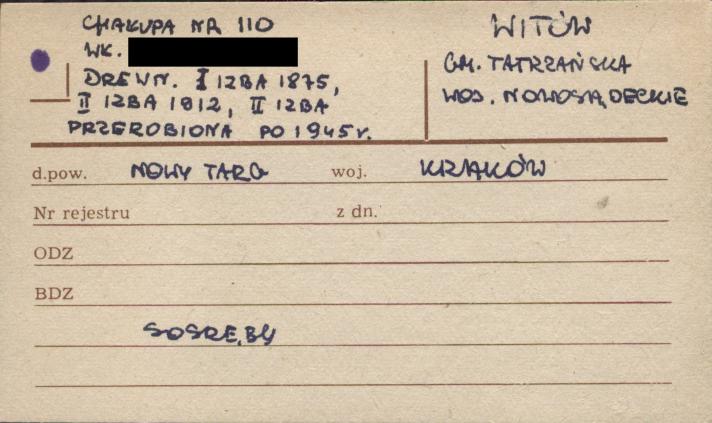 CHAŁUPA NR 110
WŁ.
DREWN. I IZBA 1875,
II IZBA 1912, II IZBA
PRZEROBIONA PO 1945 r.
WITÓW
GM. TATRZAŃSKA
WOJ. NOWOSĄDECKIE
d.pow. NOWY TARG woj. KRAKÓW
Nr rejestru z dn.
ODZ
BDZ
SOSRĘBY